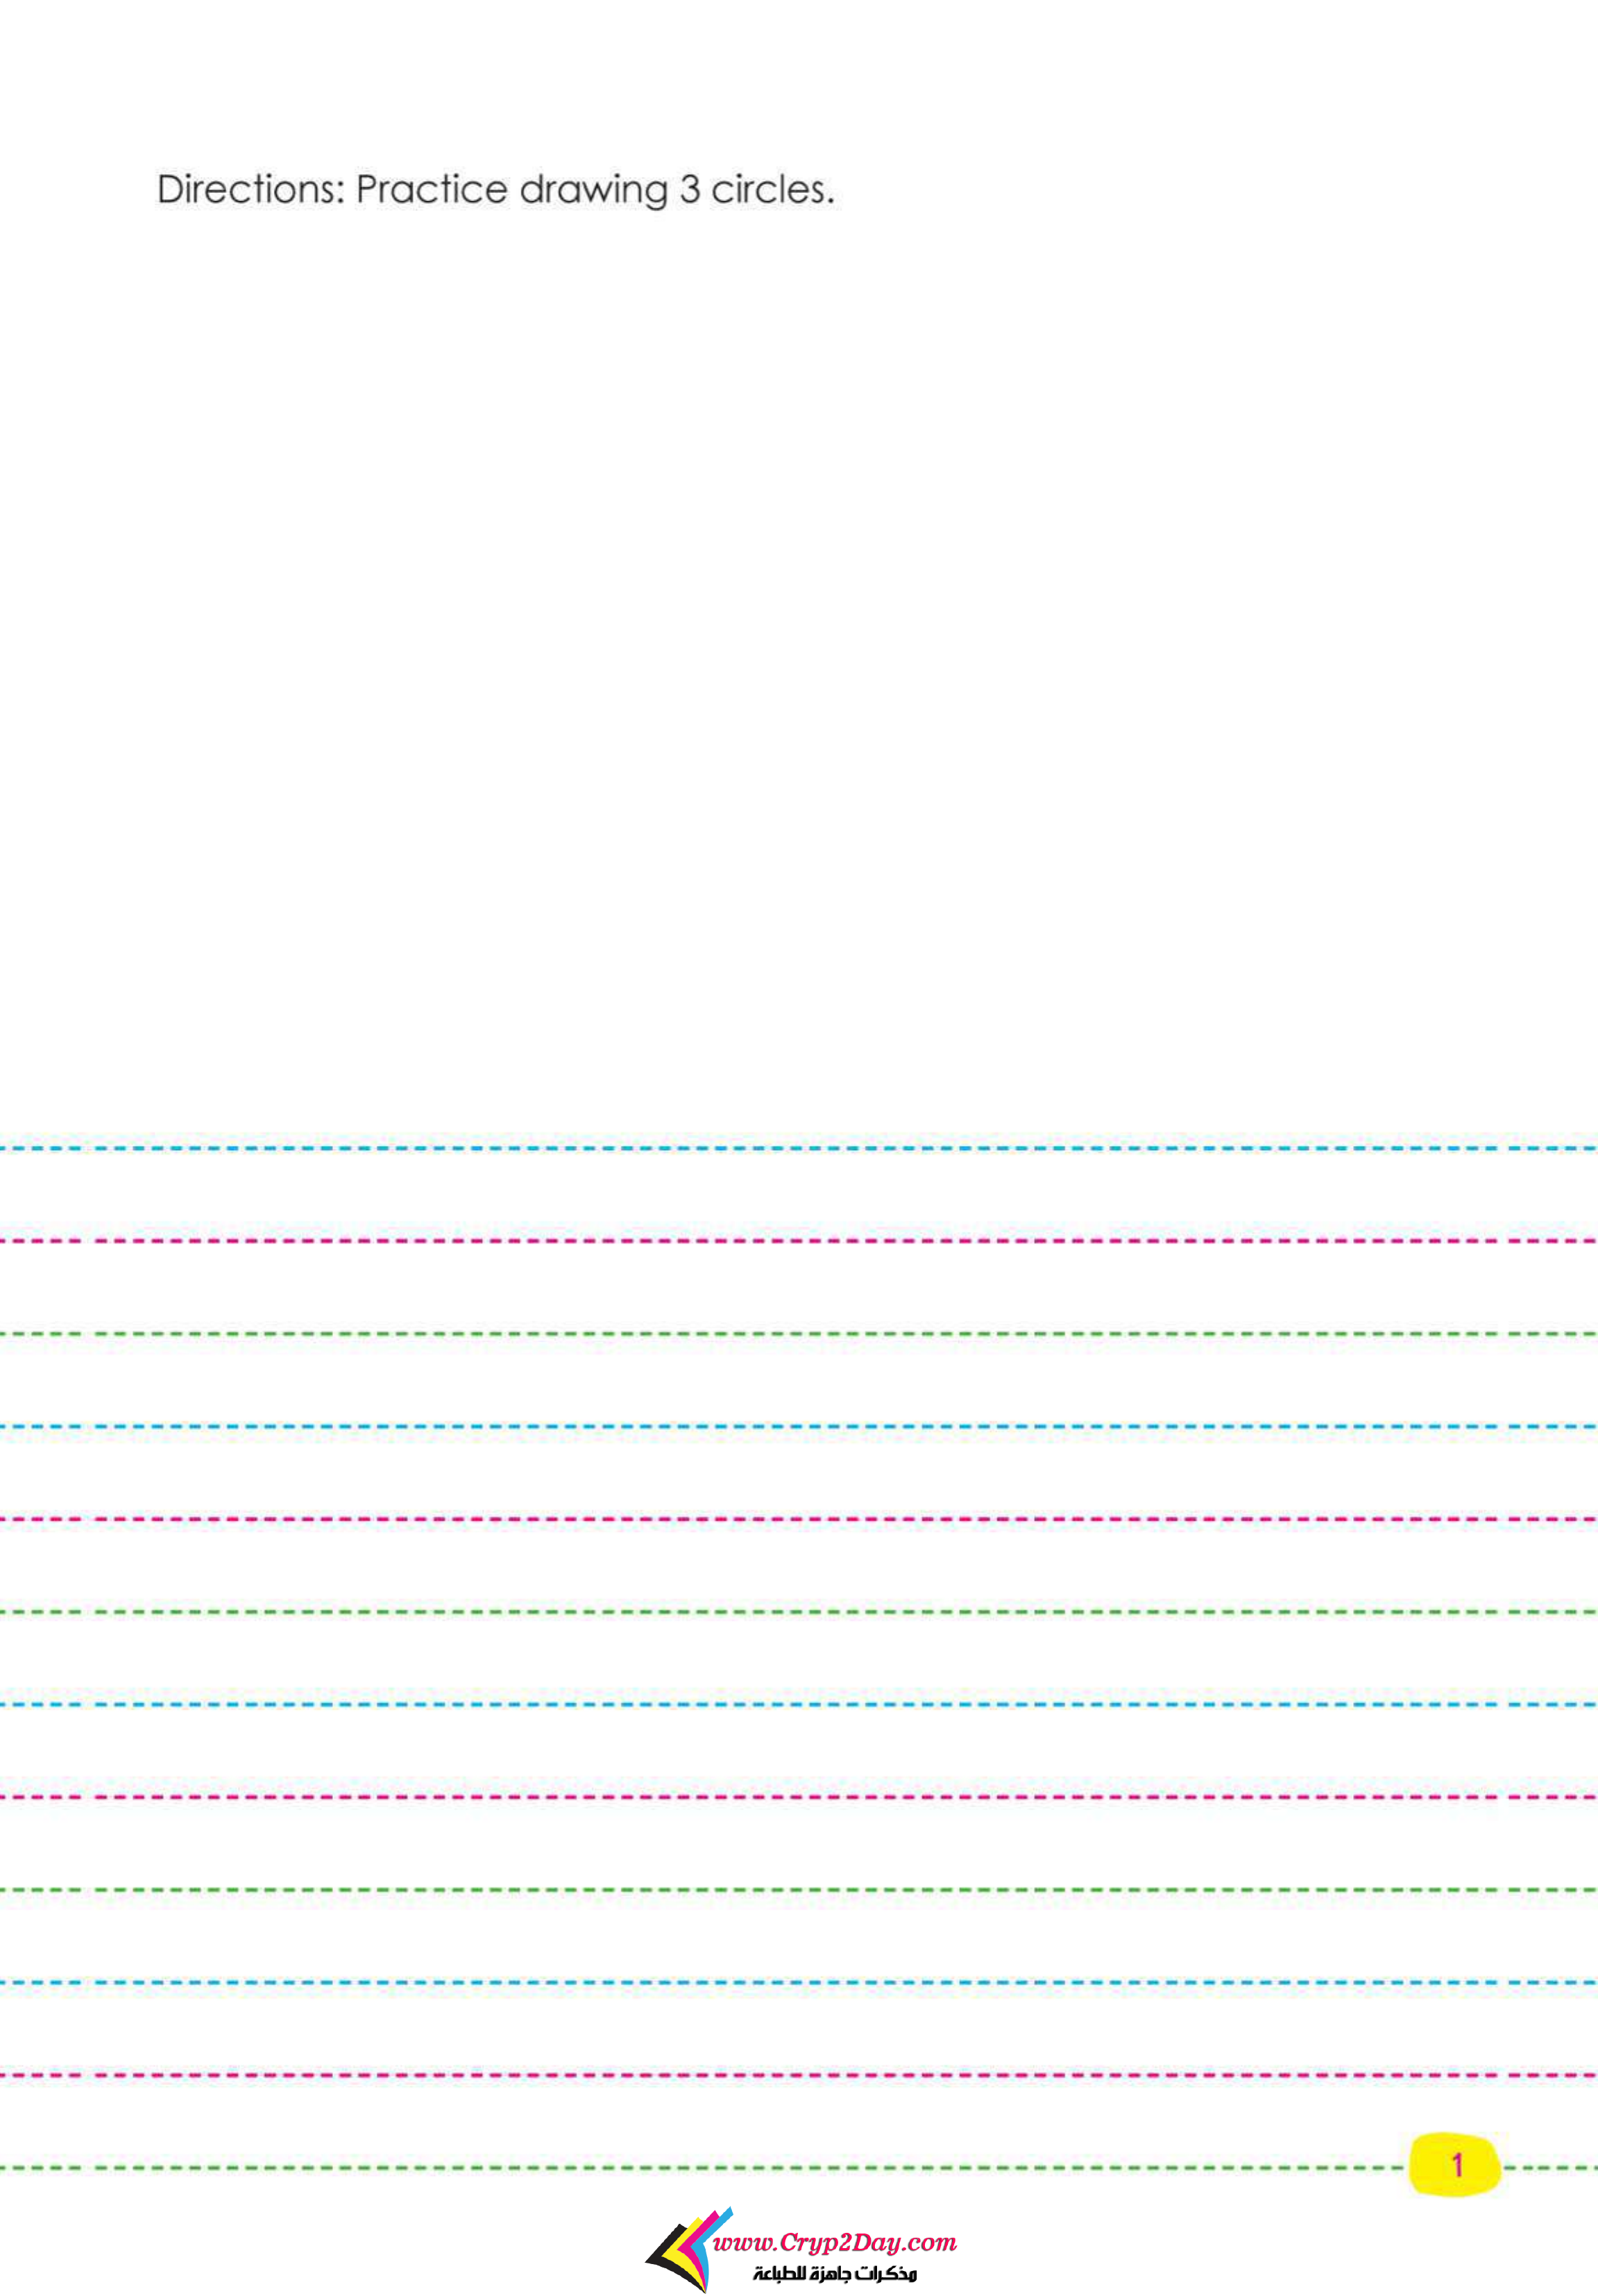 Directions: Practice drawing 3 circles.
1
www.Cryp2Day.com
مذكرات جاهزة للطباعة